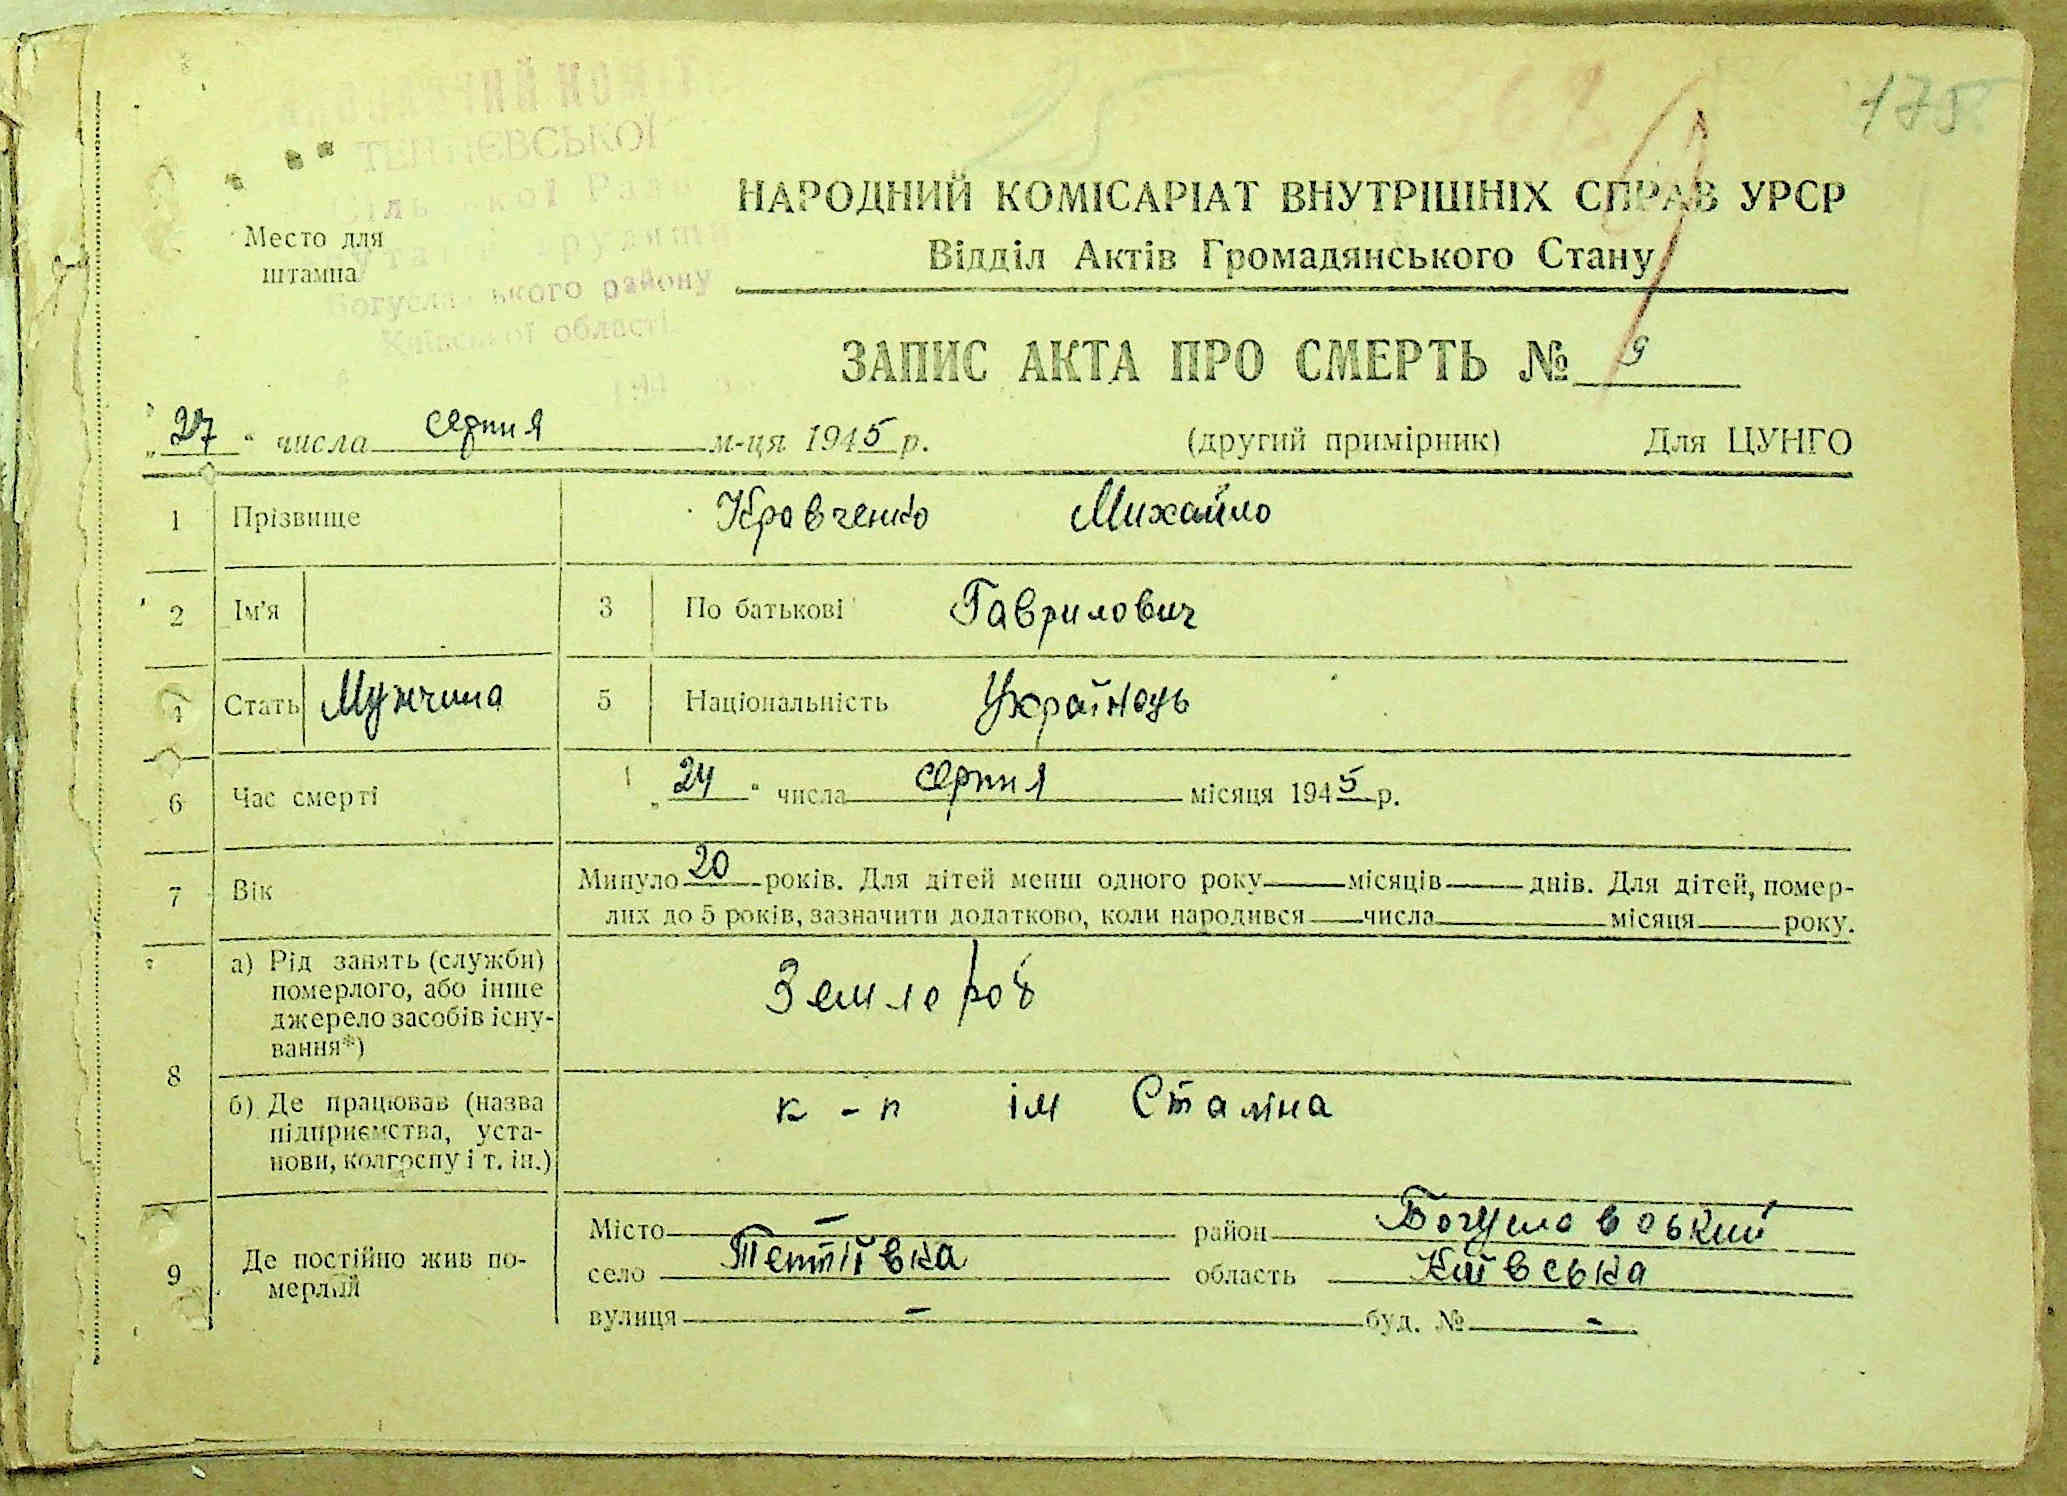 25
175
ТЕПТІЄВСЬКОЇ
Богуславського району
Київської області
Место для
штампа
НАРОДНИЙ КОМІСАРІАТ ВНУТРІШНІХ СПРАВ УРСР
Відділ Актів Громадянського Стану
ЗАПИС АКТА ПРО СМЕРТЬ № 9
„27“ числа серпня м-ця 1945 р. (другий примірник) Для ЦУНГО
1 Прізвище Кравченко Михайло
2 Ім'я 3 По батькові Гаврилович
4 Стать Мужчина 5 Національність Українець
6 Час смерті „24“ числа серпня місяця 1945 р.
7 Вік Минуло 20 років. Для дітей менш одного року місяців днів. Для дітей, помер-
лих до 5 років, зазначити додатково, коли народився числа місяця року.
8 а) Рід занять (служби)
померлого, або інше
джерело засобів існу-
вання*)
Землероб
б) Де працював (назва
підприємства, уста-
нови, колгоспу і т. ін.)
к - п ім Сталіна
9 Де постійно жив по-
мерлий
Місто — район Богуславський
село Тептіївка область Київська
вулиця — буд. № -